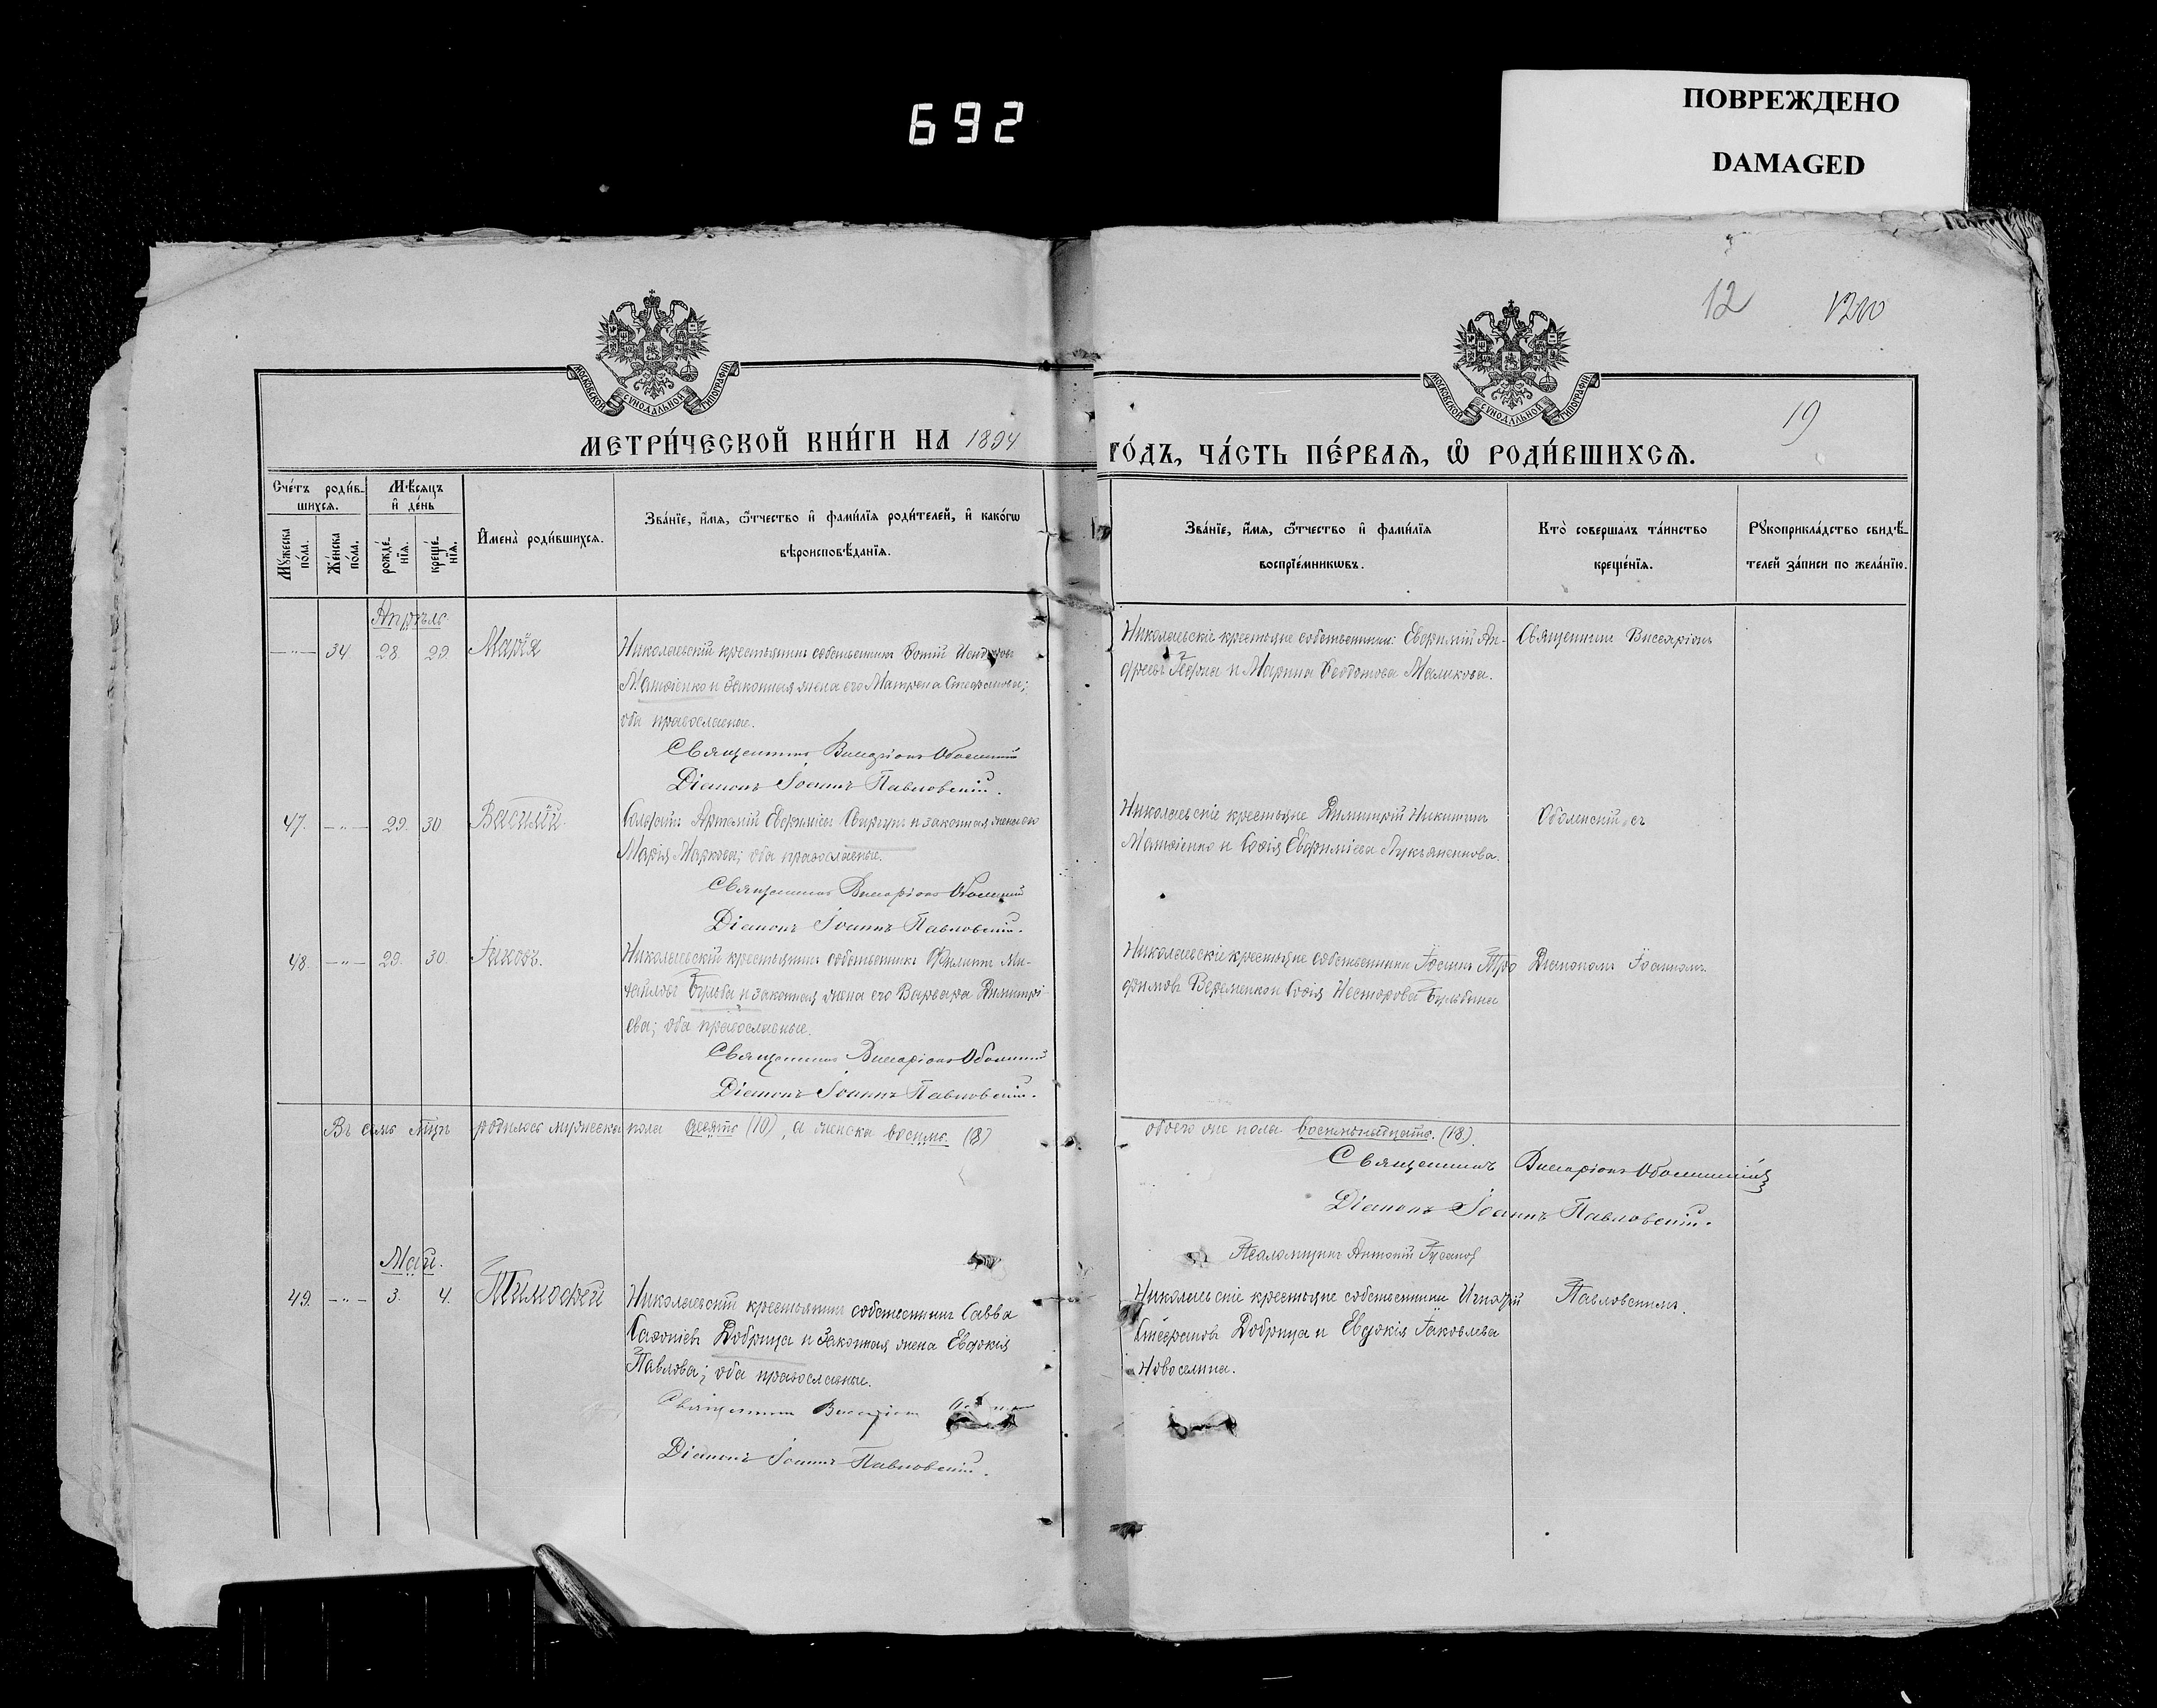 692
ПОВРЕЖДЕНО
DAMAGED
12
МОСКОВСКОЙ СУНОДАЛЬНОЙ ТИПОГРАФІИ
МОСКОВСКОЙ СУНОДАЛЬНОЙ ТИПОГРАФІИ
19
МЕТРИ́ЧЕСКОЙ КНИ́ГИ НА 1894 ГО́ДЪ, ЧА́СТЬ ПЕ́РВАЯ, Ѡ҆ РОДИ́ВШИХСЯ.
Сче́тъ роди́в-
шихся.
Мѣ́сяцъ
и҆ де́нь
Мꙋ́жеска по́ла.
Же́нска по́ла.
рожде́-
нїѧ.
креще́-
нїѧ.
И҆мена̀ роди́вшихсѧ.
Зва́нїе, и҆́мѧ, ѻ҆́тчество и҆ фами́лїѧ роди́телей, и҆ како́гѡ
вѣроисповѣ́данїѧ.
Зва́нїе, и҆́мѧ, ѻ҆́тчество и҆ фами́лїѧ
воспрїе́мникѡвъ.
Кто̀ соверша́лъ та́инство
креще́нїѧ.
Рꙋкоприкла́дство свидѣ́-
телей за́писи по жела́нїю.
Апрѣль
— „ — 34 28 29 Марія
Николаевскій крестьянинъ собственникъ Фотій
Матѳіенко и законная жена его Матрена Стефанова;
оба православные.
Священникъ Виссаріонъ Оболенскій
Діаконъ Іоаннъ Павловскій.
Николаевскіе крестьяне собственники: Евфимій Ан-
дреевъ и Марина Ѳеодотова Маликова.
Священникъ Виссаріонъ
47. — „ — 29. 30 Василій
Солдатъ Артемій Евфиміевъ и законная жена его
Марія Маркова; оба православные.
Священникъ Виссаріонъ Оболенскій
Діаконъ Іоаннъ Павловскій.
Николаевскіе крестьяне Димитрій Никитинъ
Матѳіенко и Софія Евфиміева Лукьяненкова.
Оболенскій съ
48. — „ — 29. 30. Іаковъ.
Николаевскій крестьянинъ собственникъ Филиппъ Ми-
хайловъ Бульба и законная жена его Варвара Димитрі-
ева; оба православные.
Священникъ Виссаріонъ Оболенскій
Діаконъ Іоаннъ Павловскій.
Николаевскіе крестьяне собственники Іоаннъ Тро
фимовъ Веременко и Софія Несторова Бульбина
Діакономъ Іоанномъ
Въ семъ мѣсяцѣ родилось мужеска пола десять (10), а женска восемь (8)
обоего же пола восемьнадцать. (18).
Священникъ Виссаріонъ Оболенскій
Діаконъ Іоаннъ Павловскій.
Псаломщикъ Антоній
Май.
49. — „ — 3. 4. Тимоѳей
Николаевскій крестьянинъ собственникъ Савва
Добрица и законная жена Евдокія
Павлова; оба православные.
Священникъ Виссаріонъ
Діаконъ Іоаннъ Павловскій.
Николаевскіе крестьяне собственники Игнатій
Стефановъ Добрица и Евдокія Іаковлева
Новоселина.
Павловскимъ.